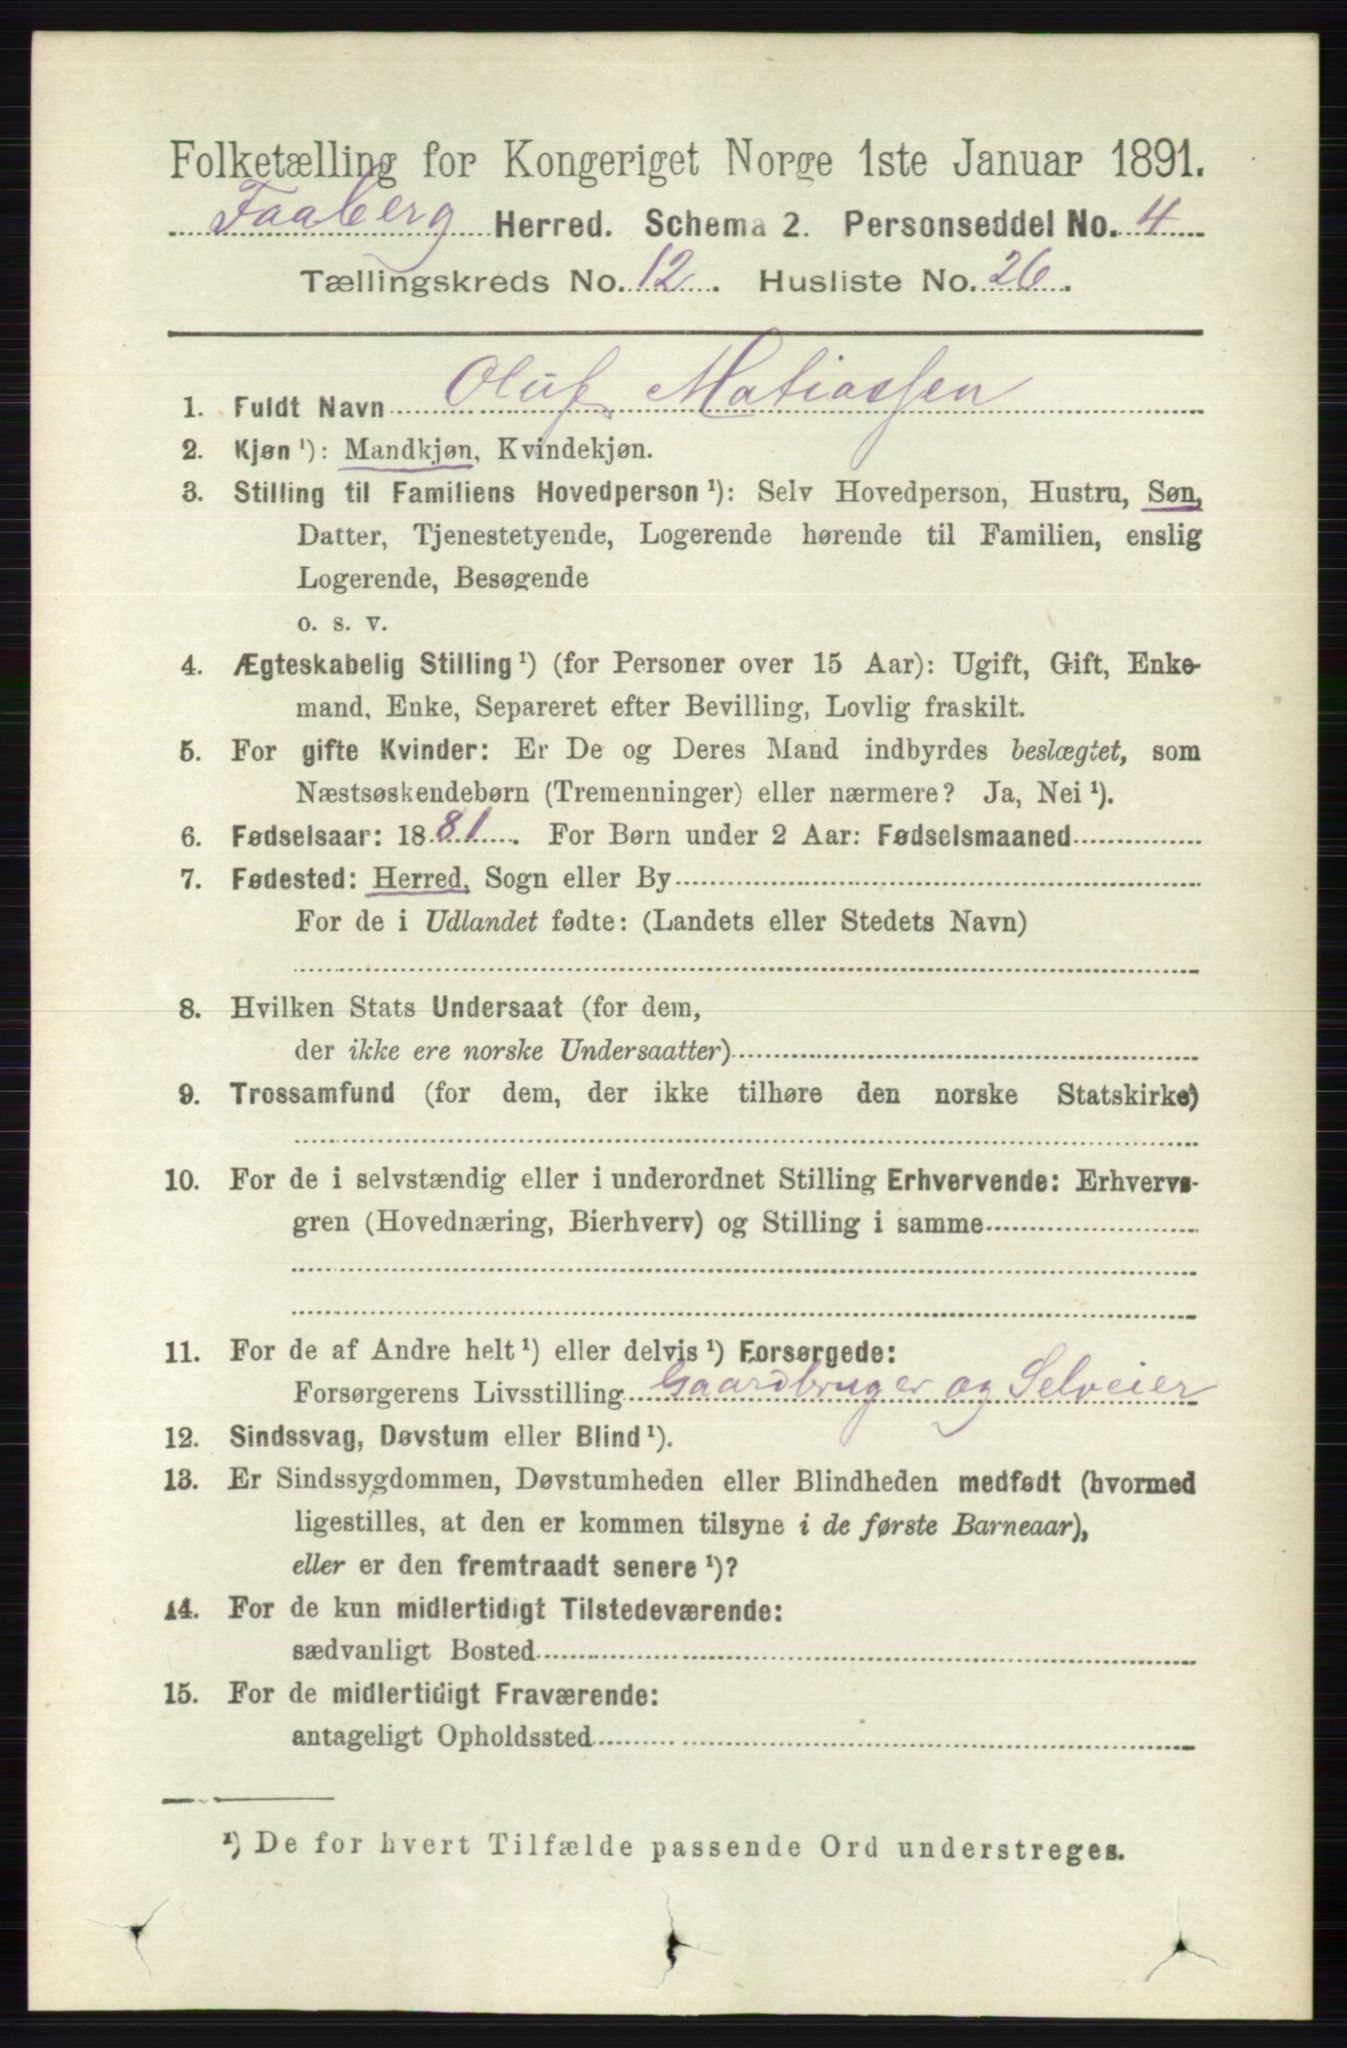 Folketælling for Kongeriget Norge 1ste Januar 1891.
Faaberg Herred. Schema 2. Personseddel No. 4
Tællingskreds No. 12. Husliste No. 26.
1. Fuldt Navn Oluf Matiassen
2. Kjøn ¹): Mandkjøn, Kvindekjøn.
3. Stilling til Familiens Hovedperson ¹): Selv Hovedperson, Hustru, Søn,
Datter, Tjenestetyende, Logerende hørende til Familien, enslig
Logerende, Besøgende
o. s. v.
4. Ægteskabelig Stilling ¹) (for Personer over 15 Aar): Ugift, Gift, Enke-
mand, Enke, Separeret efter Bevilling, Lovlig fraskilt.
5. For gifte Kvinder: Er De og Deres Mand indbyrdes beslægtet, som
Næstsøskendebørn (Tremenninger) eller nærmere? Ja, Nei ¹).
6. Fødselsaar: 1881. For Børn under 2 Aar: Fødselsmaaned
7. Fødested: Herred, Sogn eller By
For de i Udlandet fødte: (Landets eller Stedets Navn)
8. Hvilken Stats Undersaat (for dem,
der ikke ere norske Undersaatter)
9. Trossamfund (for dem, der ikke tilhøre den norske Statskirke)
10. For de i selvstændig eller i underordnet Stilling Erhvervende: Erhvervs-
gren (Hovednæring, Bierhverv) og Stilling i samme
11. For de af Andre helt ¹) eller delvis ¹) Forsørgede:
Forsørgerens Livsstilling Gaardbruger og Selveier
12. Sindssvag, Døvstum eller Blind ¹).
13. Er Sindssygdommen, Døvstumheden eller Blindheden medfødt (hvormed
ligestilles, at den er kommen tilsyne i de første Barneaar),
eller er den fremtraadt senere ¹)?
14. For de kun midlertidigt Tilstedeværende:
sædvanligt Bosted
15. For de midlertidigt Fraværende:
antageligt Opholdssted
¹) De for hvert Tilfælde passende Ord understreges.